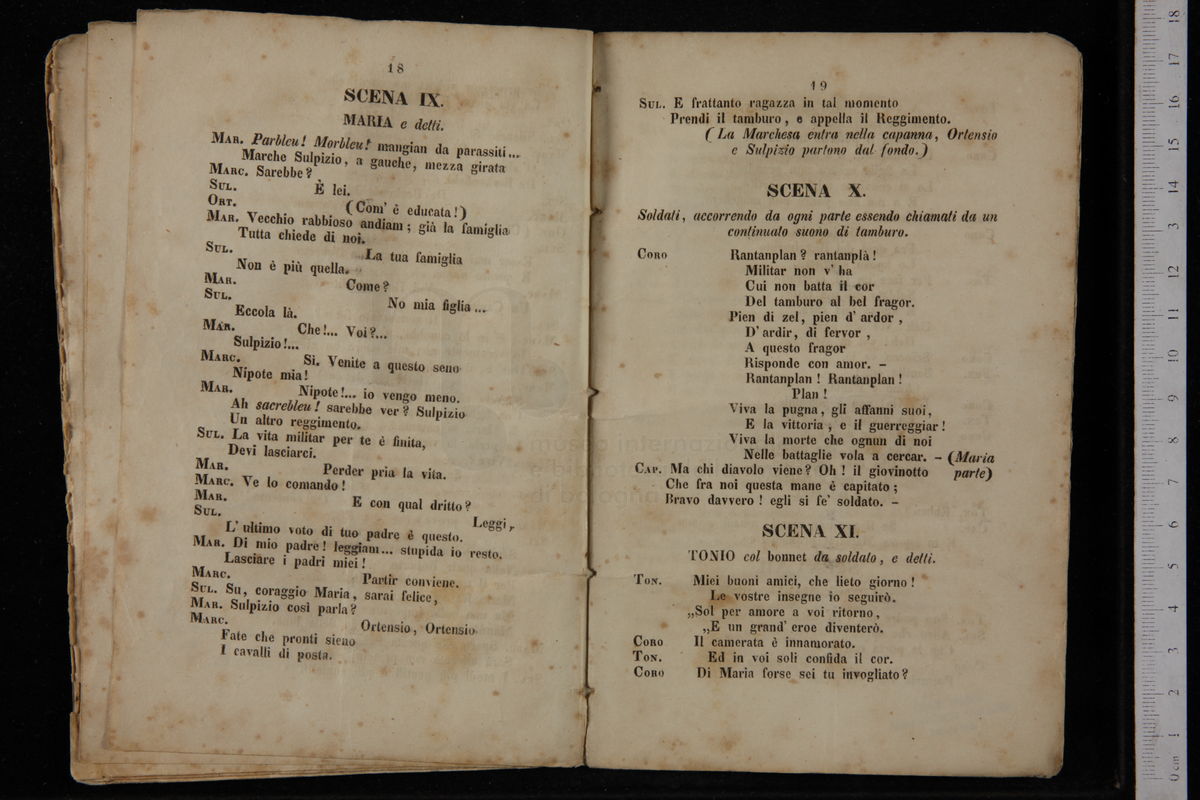 18
SCENA IX.
MARIA e detti.
MAR. Parbleu! Morbleu! mangian da parassiti...
Marche Sulpizio, a gauche, mezza girata
MARC. Sarebbe?
SUL. È lei.
ORT. (Com' è educata!)
MAR. Vecchio rabbioso andiam; già la famiglia
Tutta chiede di noi.
SUL. La tua famiglia
Non è più quella.
MAR. Come?
SUL. No mia figlia...
Eccola là.
MAR. Che!... Voi?...
Sulpizio!...
MARC. Si. Venite a questo seno
Nipote mia!
MAR. Nipote!... io vengo meno.
Ah sacrebleu! sarebbe ver? Sulpizio
Un altro reggimento.
SUL. La vita militar per te è finita,
Devi lasciarci.
MAR. Perder pria la vita.
MARC. Ve lo comando!
MAR. E con qual dritto?
SUL. Leggi,
L' ultimo voto di tuo padre è questo.
MAR. Di mio padre! leggiam... stupida io resto.
Lasciare i padri miei!
MARC. Partir conviene.
SUL. Su, coraggio Maria, sarai felice,
MAR. Sulpizio così parla?
MARC. Ortensio, Ortensio
Fate che pronti sieno
I cavalli di posta.
19
SUL. E frattanto ragazza in tal momento
Prendi il tamburo, e appella il Reggimento.
(La Marchesa entra nella capanna, Ortensio
e Sulpizio partono dal fondo.)
SCENA X.
Soldati, accorrendo da ogni parte essendo chiamati da un
continuato suono di tamburo.
CORO Rantanplan? rantanplà!
Militar non v' ha
Cui non batta il cor
Del tamburo al bel fragor.
Pien di zel, pien d' ardor,
D' ardir, di fervor,
A questo fragor
Risponde con amor. -
Rantanplan! Rantanplan!
Plan!
Viva la pugna, gli affanni suoi,
E la vittoria, e il guerreggiar!
Viva la morte che ognun di noi
Nelle battaglie vola a cercar. - (Maria
CAP. Ma chi diavolo viene? Oh! il giovinotto parte)
Che fra noi questa mane è capitato;
Bravo davvero! egli si fe' soldato. -
SCENA XI.
TONIO col bonnet da soldato, e detti.
TON. Miei buoni amici, che lieto giorno!
Le vostre insegne io seguirò.
„Sol per amore a voi ritorno,
„E un grand' eroe diventerò.
CORO Il camerata è innamorato.
TON. Ed in voi soli confida il cor.
CORO Di Maria forse sei tu invogliato?